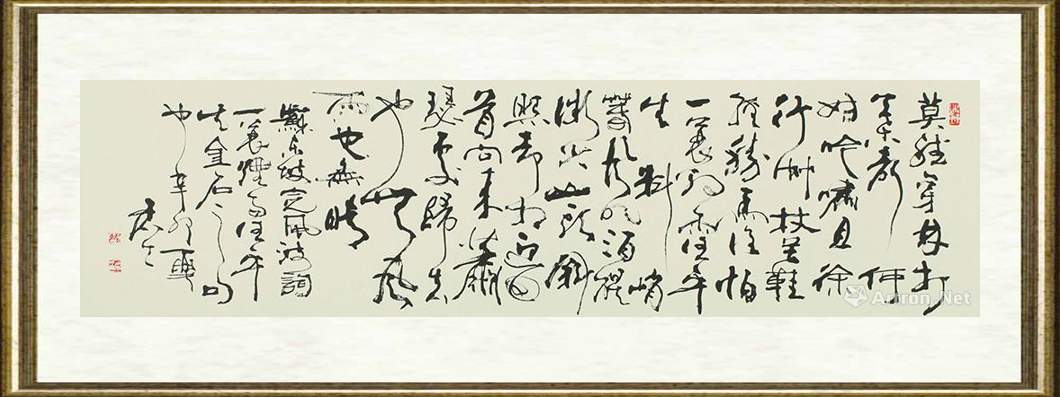 莫聽穿林打
葉聲何
妨吟嘯且徐
行竹杖芒鞋
輕勝馬誰怕
一蓑烟雨任平
生料峭
春風吹酒醒
微冷山頭斜
照却相迎回
首向來蕭
瑟處歸去
也无風
雨也無晴
蘇東坡定風波詞
一蓑煙雨任平
生金石之句
也辛卯夏
Artron.Net